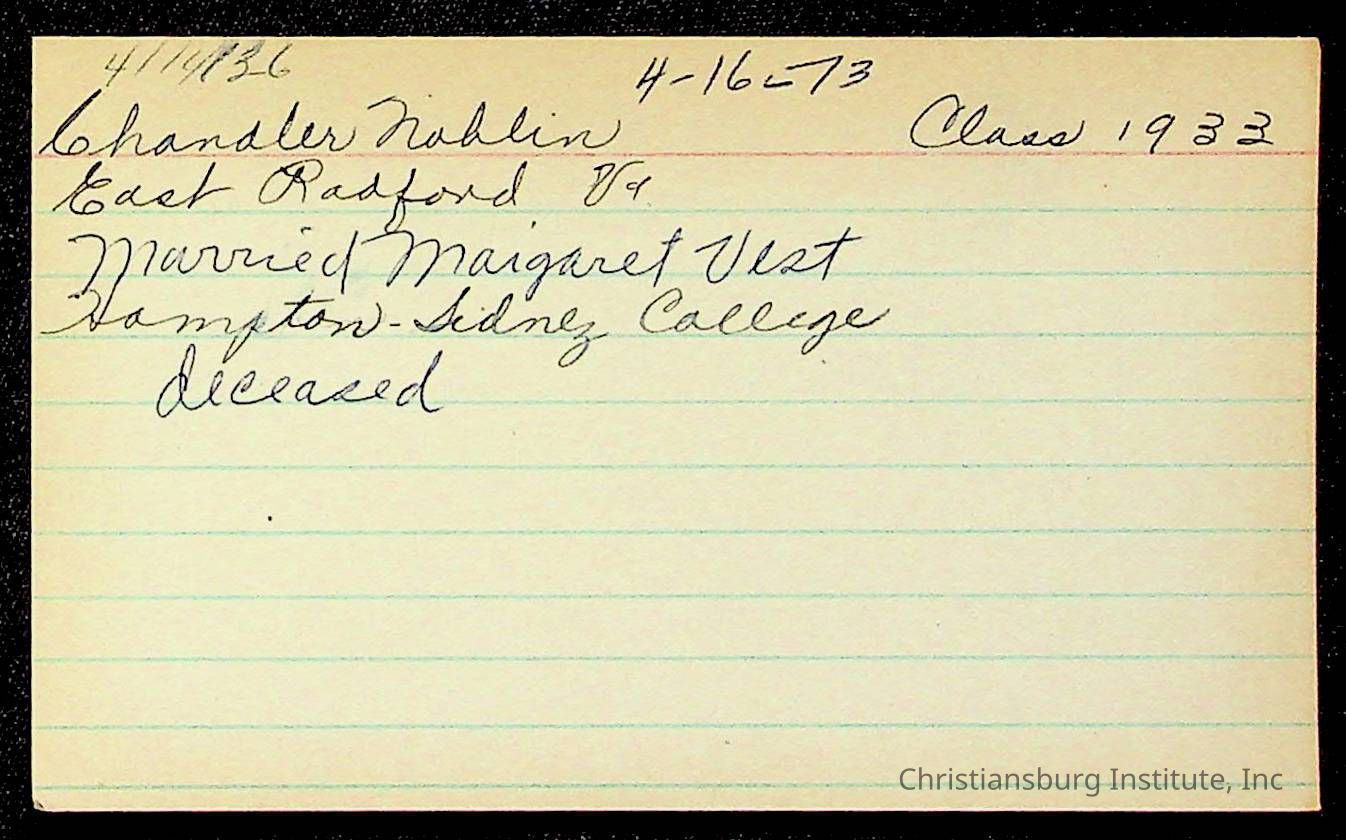 4-16-73
Chandler Noblin Class 1933
East Radford Va.
Married Margaret Vest
Hampton-Sidney College
deceased
Christiansburg Institute, Inc